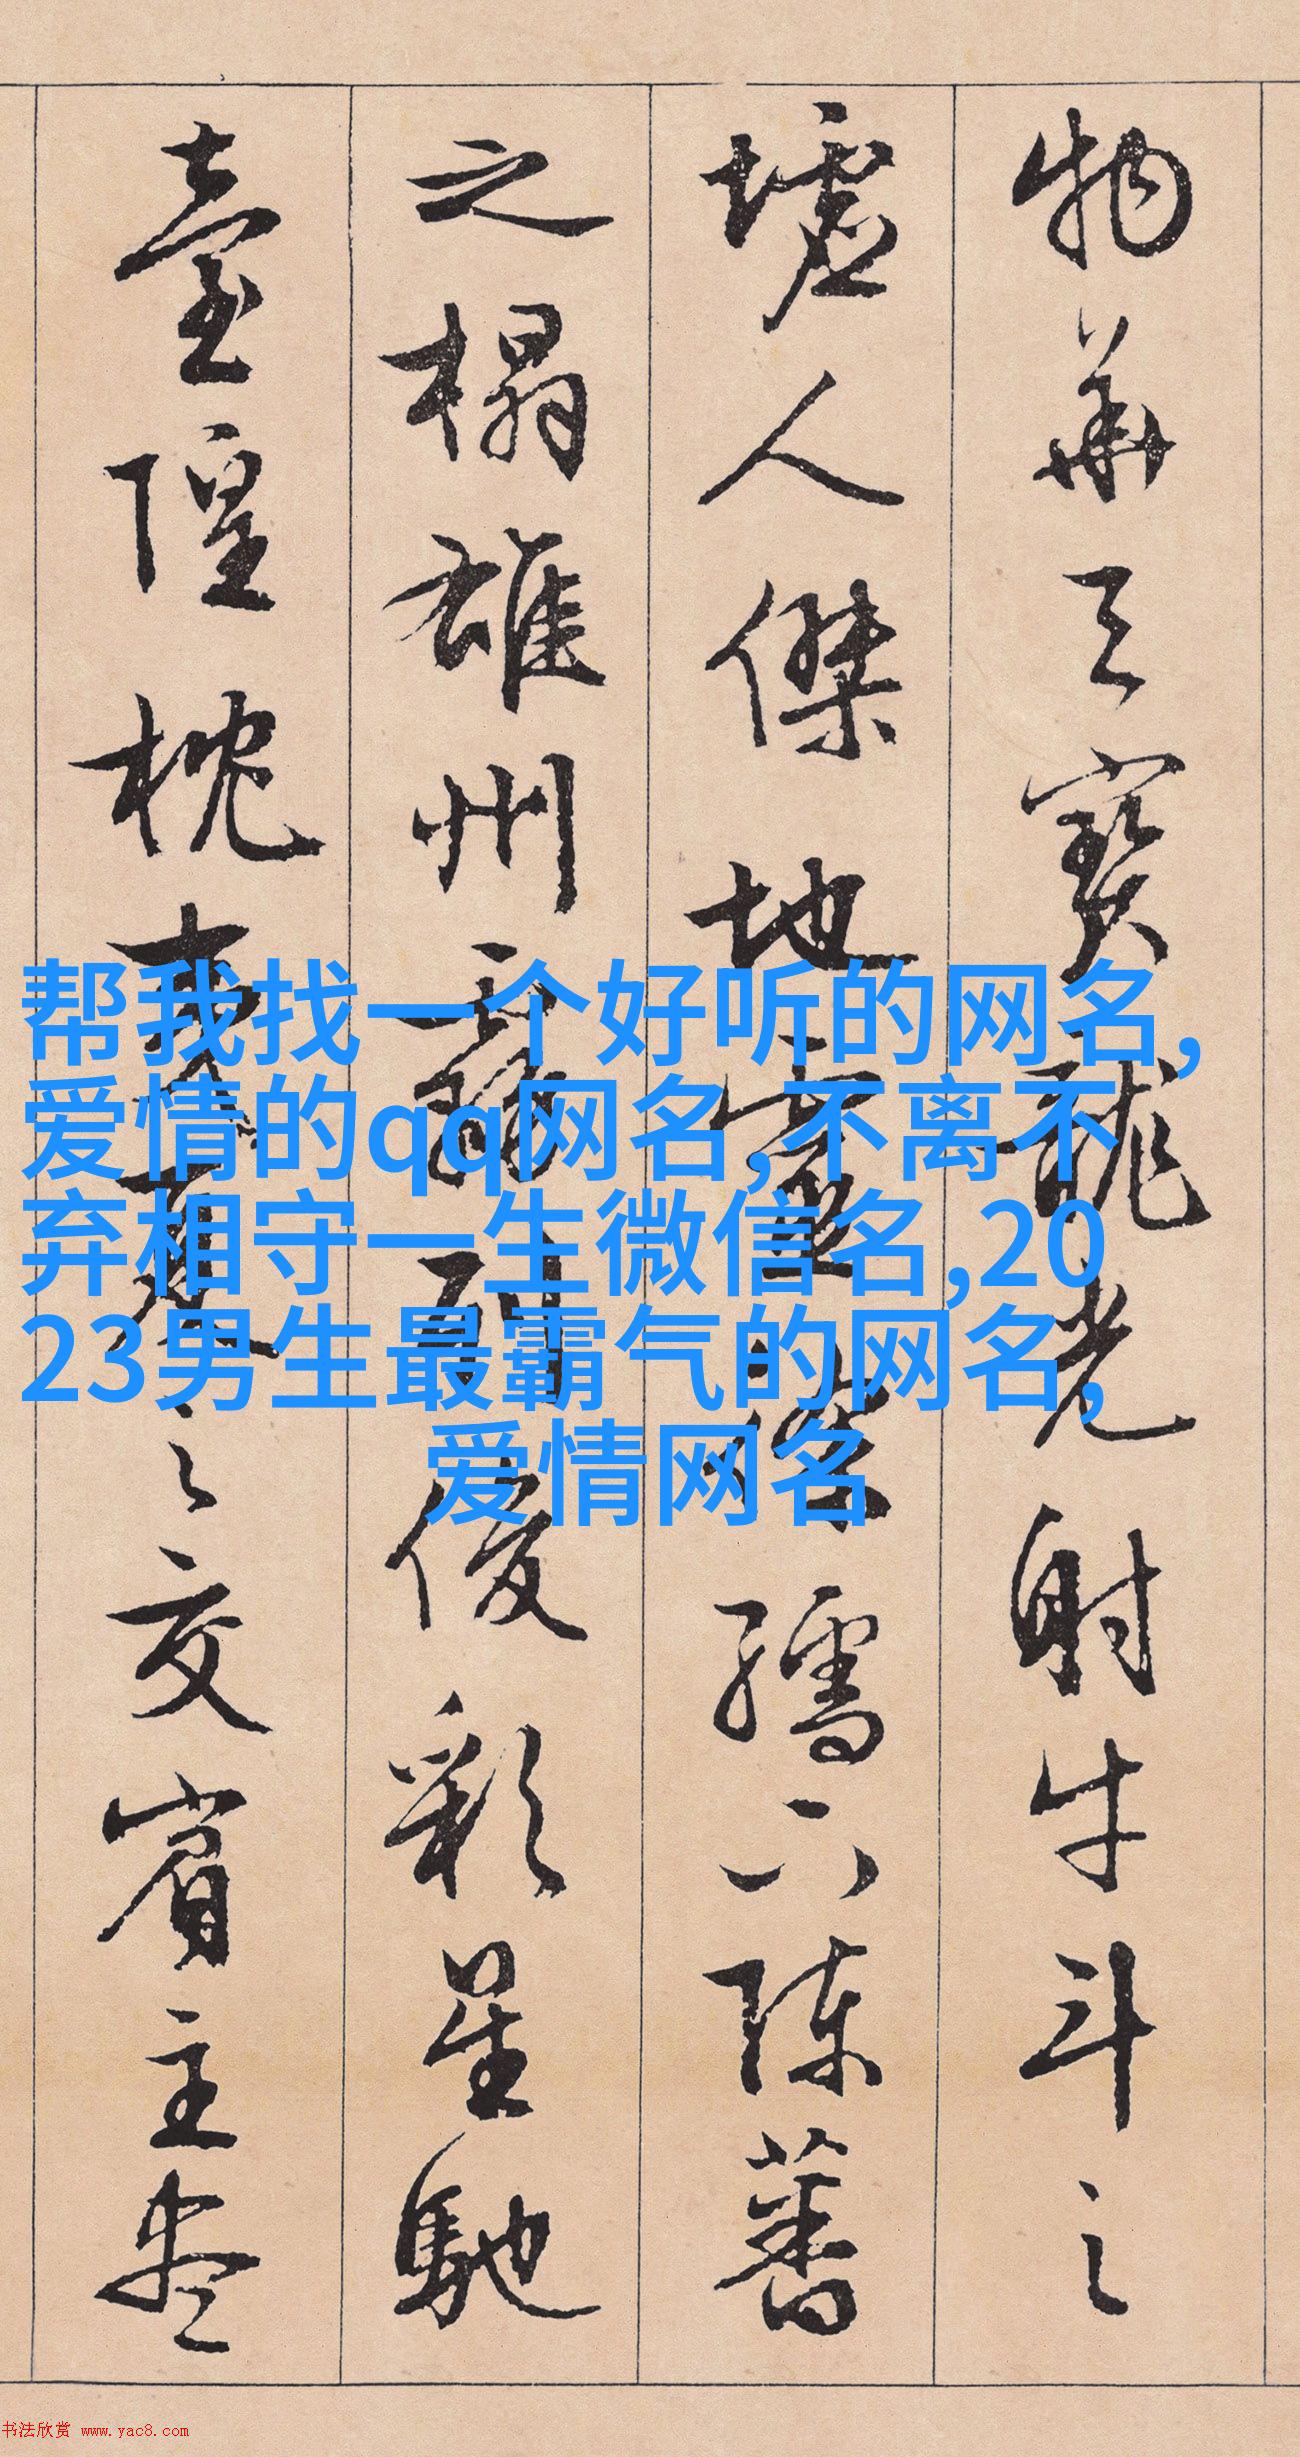 物華天寶龍光射牛斗之
墟人傑地靈徐孺下陳蕃
之榻雄州霧列俊彩星馳
臺隍枕夷夏之交賓主盡
帮我找一个好听的网名,
爱情的qq网名,不离不
弃相守一生微信名,20
23男生最霸气的网名,
爱情网名
书法欣赏 www.yac8.com